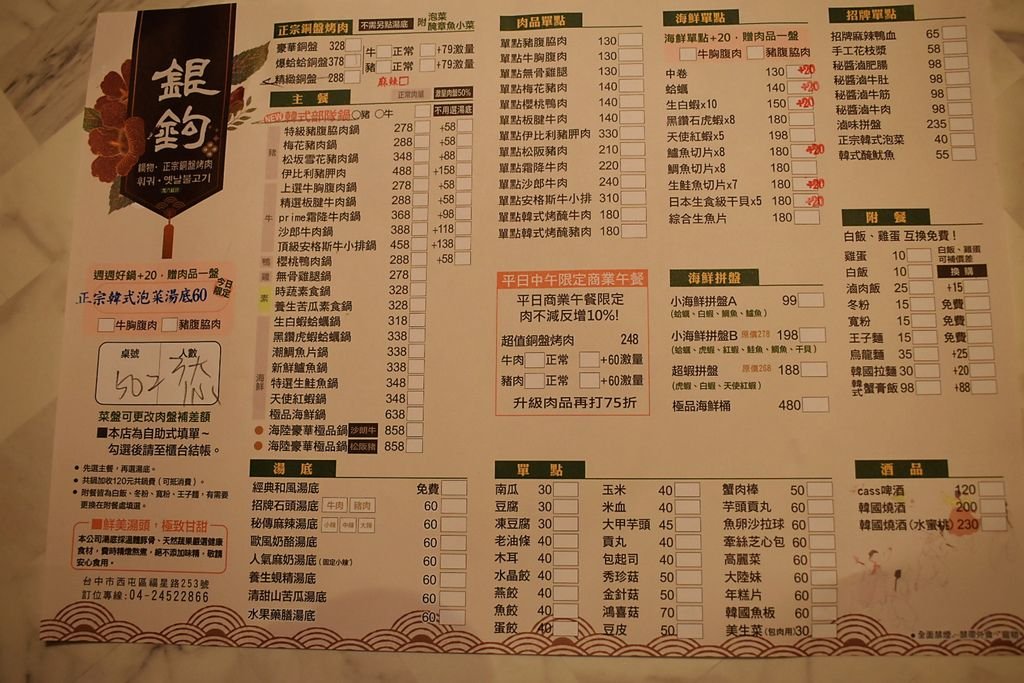 銀鉤
鍋物·正宗銅盤烤肉
훠궈·옛날불고기
週週好鍋+20·贈肉品一盤
正宗韓式泡菜湯底60
今日限定
牛胸腹肉 豬脇腹肉
桌號 人數
502
菜盤可更改肉盤補差額
■本店為自助式填單~
勾選後請至櫃台結帳。
● 先選主餐,再選湯底。
● 共鍋加收120元共鍋費(可抵消費)。
● 附餐皆為白飯、冬粉、寬粉、王子麵,有需要
更換在附餐處填選。
■鮮美湯頭,極致甘甜
本公司湯底採溫體豚骨、天然蔬果嚴選健康
食材,費時精燉熬煮,絕不添加味精,敬請
安心食用。
台中市西屯區福星路253號
訂位專線:04-24522866
正宗銅盤烤肉 不需另點湯底 附 泡菜 醃章魚小菜
豪華銅盤 328
爆蛤蛤銅盤 378
精緻銅盤 288
牛 正常 +79激量
豬 正常 +79激量
麻辣
正常肉量 激量肉盤50%
主餐 不用選湯底
NEW 韓式部隊鍋 ○豬 ○牛
豬
特級豬腹脇肉鍋 278 +58
梅花豬肉鍋 288 +58
松坂雪花豬肉鍋 348 +88
伊比利豬肉鍋 488 +158
牛
上選牛胸腹肉鍋 278 +58
精選板腱牛肉鍋 288 +58
prime霜降牛肉鍋 368 +98
沙郎牛肉鍋 388 +118
頂級安格斯牛小排鍋 458 +138
鴨 櫻桃鴨肉鍋 288 +58
雞 無骨雞腿鍋 278
素
時蔬素食鍋 328
養生苦瓜素食鍋 328
海鮮
生白蝦蛤蠣鍋 318
黑鑽虎蝦蛤蠣鍋 338
潮鯛魚片鍋 338
新鮮鱸魚鍋 338
特選生鮭魚鍋 348
天使紅蝦鍋 348
極品海鮮鍋 638
● 海陸豪華極品鍋 沙朗牛 858
● 海陸豪華極品鍋 松阪豬 858
湯底
經典和風湯底 免費
招牌石頭湯底 牛肉 豬肉 60
秘傳麻辣湯底 小辣 中辣 大辣 60
歐風奶酪湯底 60
人氣麻奶湯底(固定小辣) 60
養生蜆精湯底 60
清甜山苦瓜湯底 60
水果藥膳湯底 60
肉品單點
單點豬腹脇肉 130
單點牛胸腹肉 130
單點無骨雞腿 130
單點梅花豬肉 140
單點櫻桃鴨肉 140
單點板腱牛肉 140
單點伊比利豬胛肉 330
單點松阪豬肉 210
單點霜降牛肉 220
單點沙郎牛肉 240
單點安格斯牛小排 310
單點韓式烤醃牛肉 180
單點韓式烤醃豬肉 180
平日中午限定商業午餐
平日商業午餐限定
肉不減反增10%!
超值銅盤烤肉 248
牛肉 正常 +60激量
豬肉 正常 +60激量
升級肉品再打75折
海鮮單點
海鮮單點+20·贈肉品一盤
牛胸腹肉 豬脇腹肉
中卷 130 +20
蛤蠣 140 +20
生白蝦x10 150 +20
黑鑽石虎蝦x8 180
天使紅蝦x5 198
鱸魚切片x8 180 +20
鯛魚切片x8 180
生鮭魚切片x7 180 +20
日本生食級干貝x5 180 +20
綜合生魚片 180
海鮮拼盤
小海鮮拼盤A 99
(蛤蠣、白蝦、鯛魚、鱸魚)
小海鮮拼盤B 原價278 198
(蛤蠣、虎蝦、紅蝦、鮭魚、鯛魚、干貝)
超蝦拼盤 原價268 188
(虎蝦、白蝦、天使紅蝦)
極品海鮮桶 480
招牌單點
招牌麻辣鴨血 65
手工花枝漿 58
秘醬滷肥腸 98
秘醬滷牛肚 98
秘醬滷牛筋 98
秘醬滷牛肉 98
滷味拼盤 235
正宗韓式泡菜 40
韓式醃魷魚 55
附餐
白飯、雞蛋 互換免費!
雞蛋 10 白飯、雞蛋 可補價差
白飯 10 換購
滷肉飯 25 +15
冬粉 15 免費
寬粉 15 免費
王子麵 15 免費
烏龍麵 35 +25
韓國拉麵 30 +20
韓式蟹膏飯 98 +88
單點
南瓜 30
豆腐 30
凍豆腐 30
老油條 40
木耳 40
水晶餃 40
燕餃 40
魚餃 40
蛋餃 40
玉米 40
米血 40
大甲芋頭 45
貢丸 40
包起司 40
秀珍菇 50
金針菇 50
鴻喜菇 70
豆皮 50
蟹肉棒 50
芋頭貢丸 60
魚卵沙拉球 60
牽絲芝心包 60
高麗菜 60
大陸妹 60
年糕片 60
韓國魚板 60
美生菜(包肉用) 30
酒品
cass啤酒 120
韓國燒酒 200
韓國燒酒(水蜜桃) 230